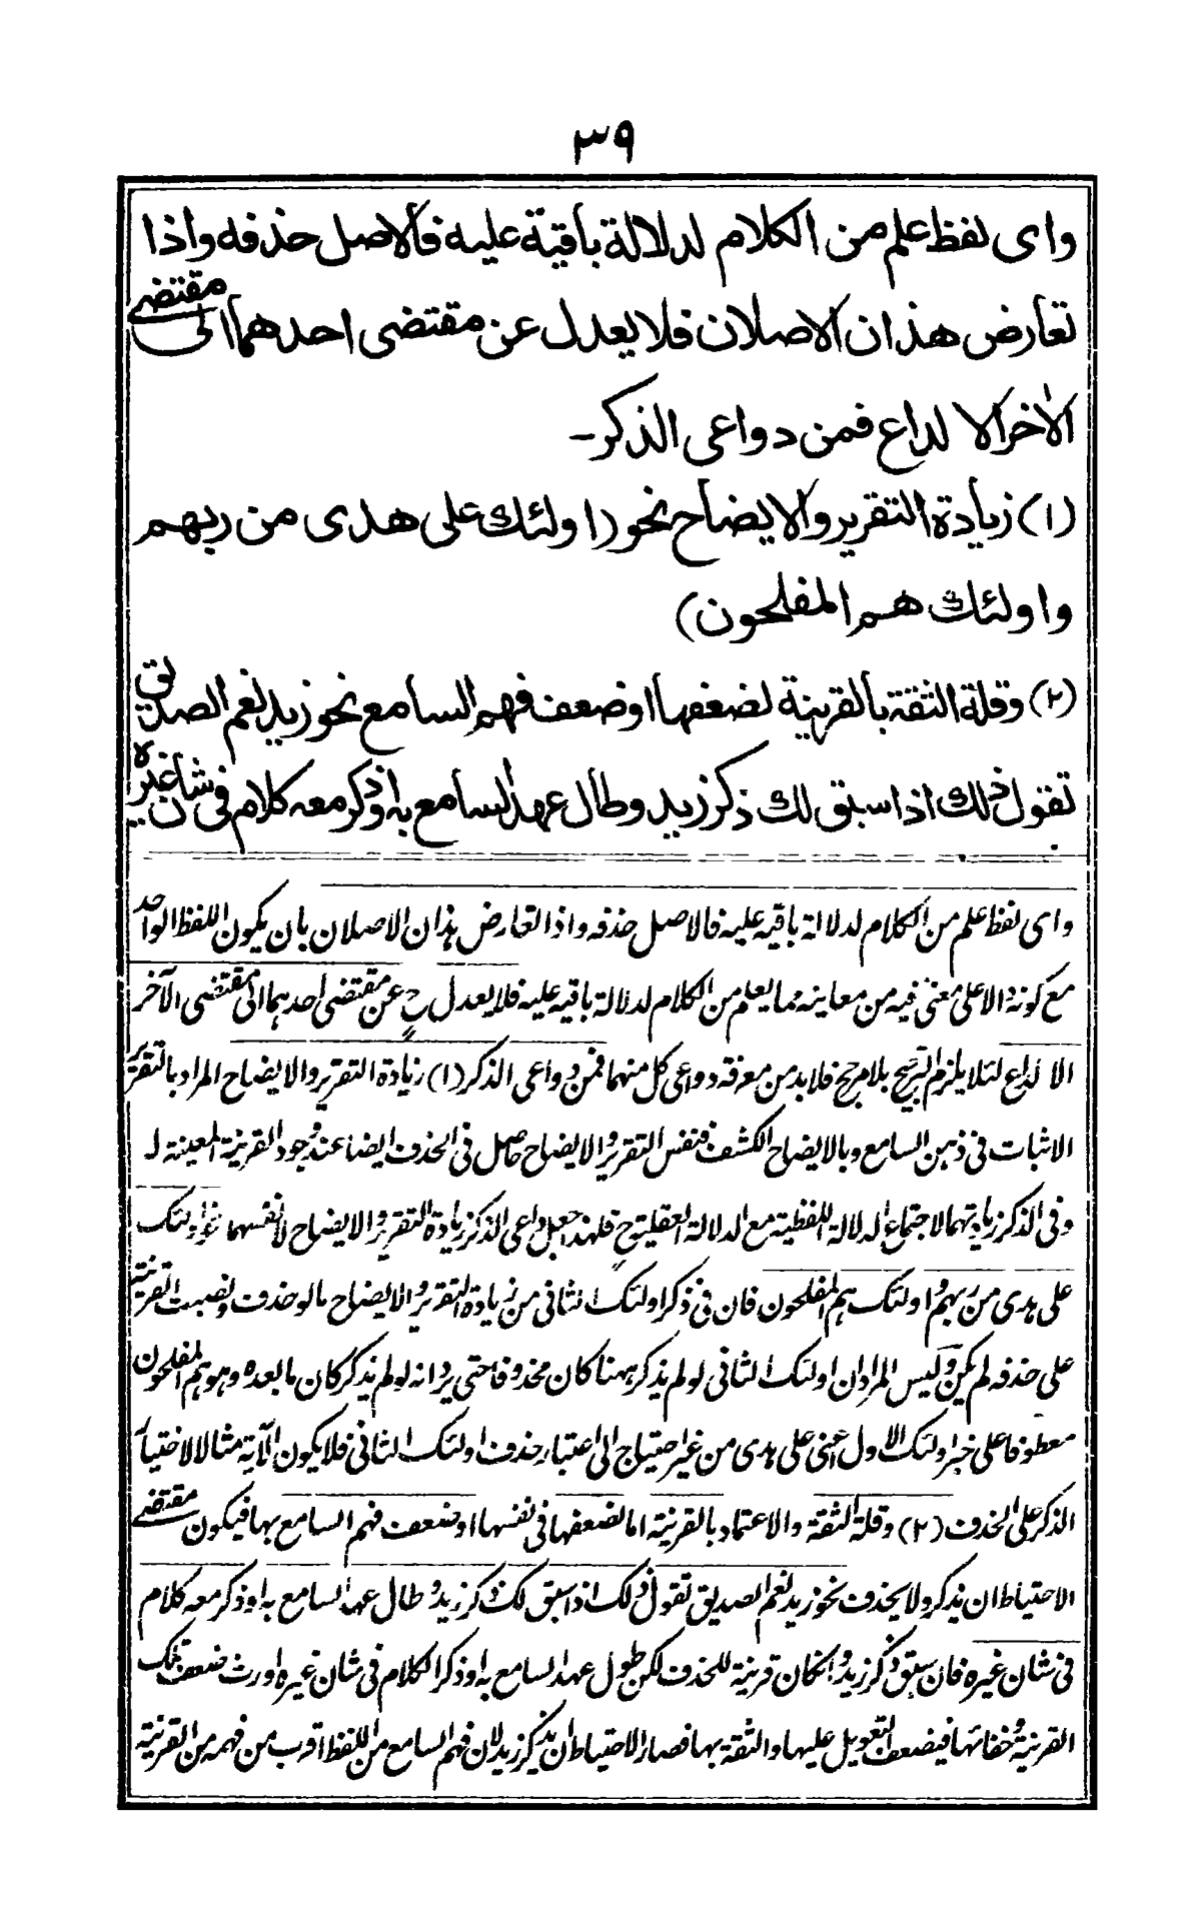 ٣٩
واى لفظ علم من الكلام لدلالة باقية عليه فالاصل حذفه واذا
تعارض هذان الاصلان فلا يعدل عن مقتضى احدهما الى مقتضى
الاٰخر الا لداع فمن دواعى الذكر-
(١) زيادة التقرير والايضاح نحو (اولئك على هدى من ربهم
واولئك هم المفلحون)
(٢) وقلة الثقة بالقرينة لضعفها اوضعف فهم السامع نحو زيد نعم الصديق
تقول ذلك اذا سبق لك ذكر زيد وطال عهد السامع به اوذكر معه كلام فى شان غيره
واى لفظ علم من الكلام لدلالة باقيه عليه فالاصل حذفه واذا تعارض هذان الاصلان بان يكون اللفظ الواحد
مع كونه دالا على معنى فيه من معاينه مما يعلم من الكلام لدلالة باقيه عليه فلا يعدل ح عن مقتضى احدهما الى مقتضى الآخر
الا لداع لئلا يلزم الترجيح بلا مرجح فلا بد من معرفة دواعى كل منهما فمن دواعى الذكر (١) زيادة التقرير والايضاح المراد بالتقرير
الاثبات فى ذهن السامع وبالايضاح الكشف فنفس التقرير والايضاح حاصل فى الحذف ايضا عند وجود القرينة المعينة لـ
وفى الذكر زيادتهما لاجتماع الدلالة اللفظية مع الدلالة العقلية ح فلهذا جعل داعى الذكر زيادة التقرير والايضاح لا نفسهما نحو اولئك
على هدى من ربهم واولئك هم المفلحون فان فى ذكر اولئك الثانى من زيادة التقرير والايضاح ما لو حذف ونصبت القرينة
على حذفه لم يكن وليس المراد ان اولئك الثانى لو لم يذكر ههنا كان محذوفا حتى يرد انه لو لم يذكر كان ما بعده وهو هم المفلحون
معطوفا على خبر اولئك الاول اعنى على هدى من غير احتياج الى اعتبار حذف اولئك الثانى فلا يكون الآية مثالا لاختيار
الذكر على الحذف (٢) وقلة الثقة والاعتماد بالقرينة اما لضعفها فى نفسها اوضعف فهم السامع بها فيكون مقتضى
الاحتياط ان يذكر ولا يحذف نحو زيد نعم الصديق تقول ذلك اذا سبق لك ذكر زيد وطال عهد السامع به اوذكر معه كلام
فى شان غيره فان سبق ذكر زيد وان كان قرينة للحذف لكن طول عهد السامع به اوذكر الكلام فى شان غيره اورث ضعف تلك
القرينة وخفائها فيضعف التعويل عليها والثقة بها فصار الاحتياط ان يذكر زيد لان فهم السامع من اللفظ اقرب من فهمه من القرينة